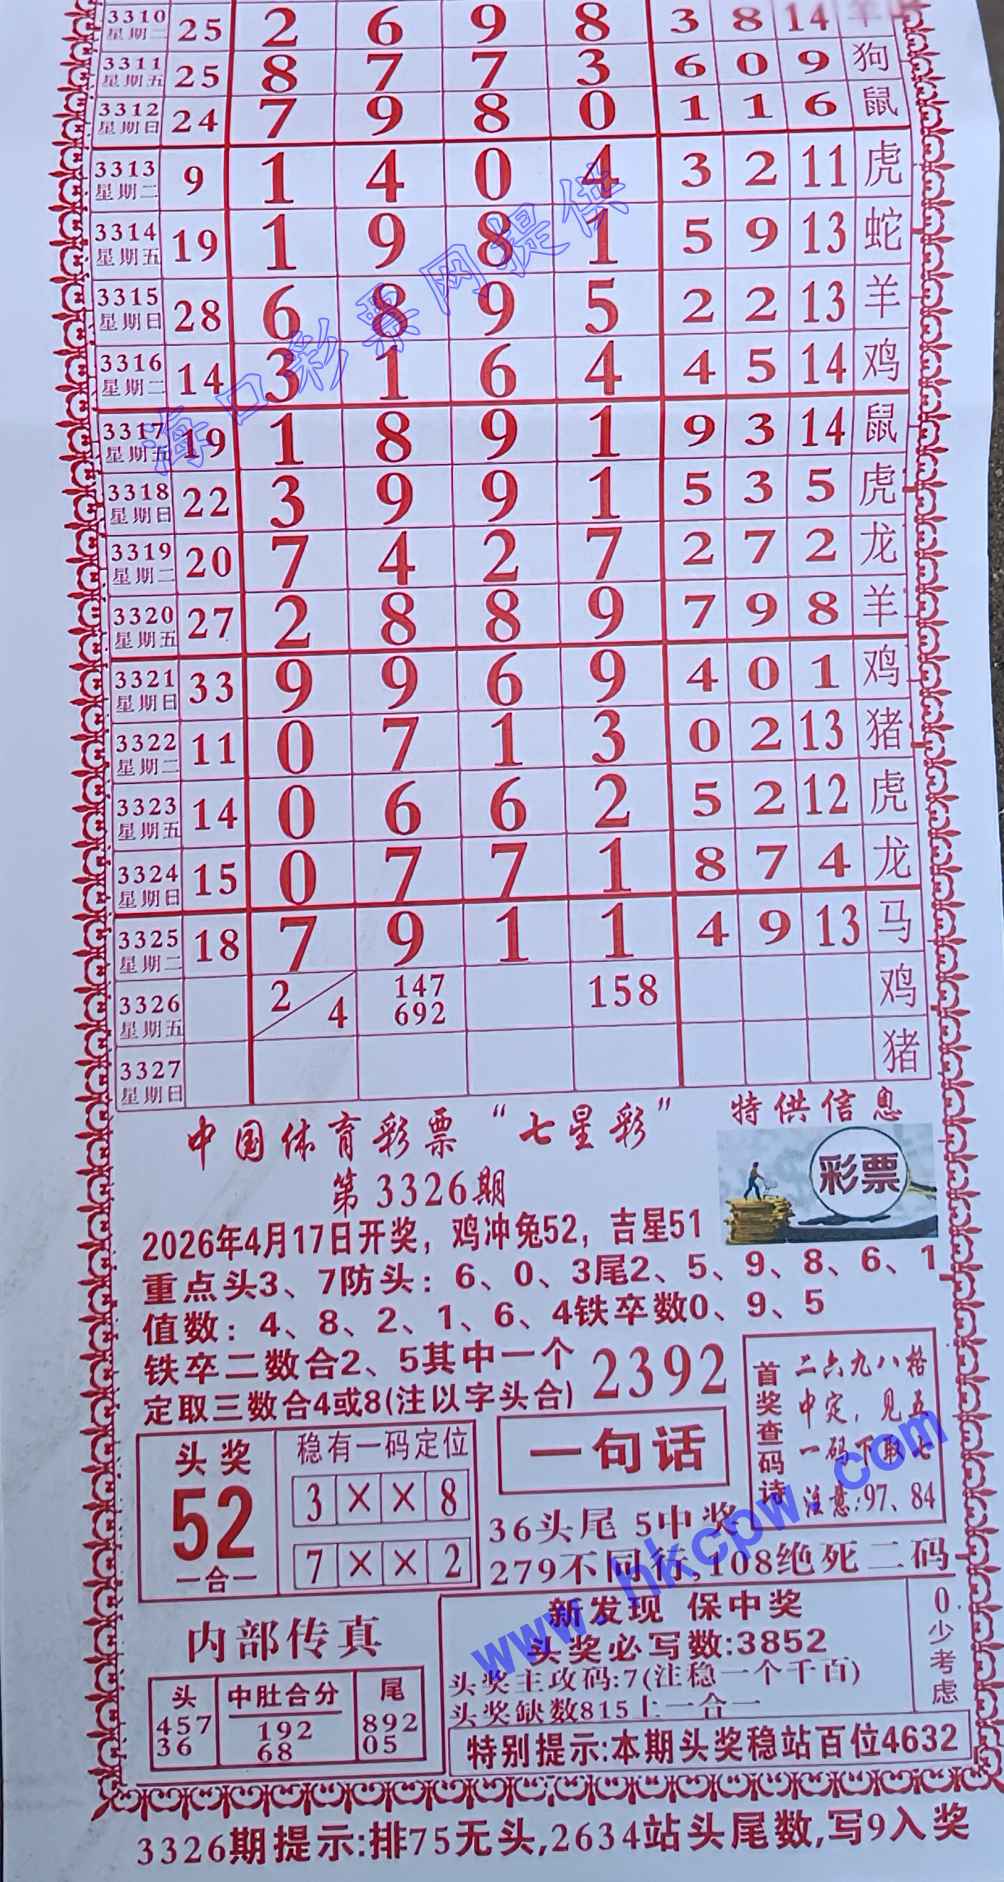 3310 25 2 6 9 8 3 8 14 羊
星期二
3311 25 8 7 7 3 6 0 9 狗
星期五
3312 24 7 9 8 0 1 1 6 鼠
星期日
3313 9 1 4 0 4 3 2 11 虎
星期二
3314 19 1 9 8 1 5 9 13 蛇
星期五
3315 28 6 8 9 5 2 2 13 羊
星期日
3316 14 3 1 6 4 4 5 14 鸡
星期二
3317 19 1 8 9 1 9 3 14 鼠
星期五
3318 22 3 9 9 1 5 3 5 虎
星期日
3319 20 7 4 2 7 2 7 2 龙
星期二
3320 27 2 8 8 9 7 9 8 羊
星期五
3321 33 9 9 6 9 4 0 1 鸡
星期日
3322 11 0 7 1 3 0 2 13 猪
星期二
3323 14 0 6 6 2 5 2 12 虎
星期五
3324 15 0 7 7 1 8 7 4 龙
星期日
3325 18 7 9 1 1 4 9 13 马
星期二
3326 2 4 147 158 鸡
星期五 692
3327 猪
星期日
海口彩票网提供
中国体育彩票“七星彩” 特供信息
第3326期
彩票
2026年4月17日开奖，鸡冲兔52，吉星51
重点头3、7防头：6、0、3尾2、5、9、8、6、1
值数：4、8、2、1、6、4铁卒数0、9、5
铁卒二数合2、5其中一个
定取三数合4或8(注以字头合)
2392
首奖查码诗
二六九八格
中定，见五
一码下取七
注意:97、84
头奖
52
一合一
稳有一码定位
3××8
7××2
一句话
36头尾 5中奖
279不同行,108绝死二码
www.hkcpw.com
内部传真
头 中肚合分 尾
457 192 892
36 68 05
新发现 保中奖
头奖必写数:3852
头奖主攻码:7(注稳一个千百)
头奖缺数815上一合一
0少考虑
特别提示:本期头奖稳站百位4632
3326期提示:排75无头,2634站头尾数,写9入奖